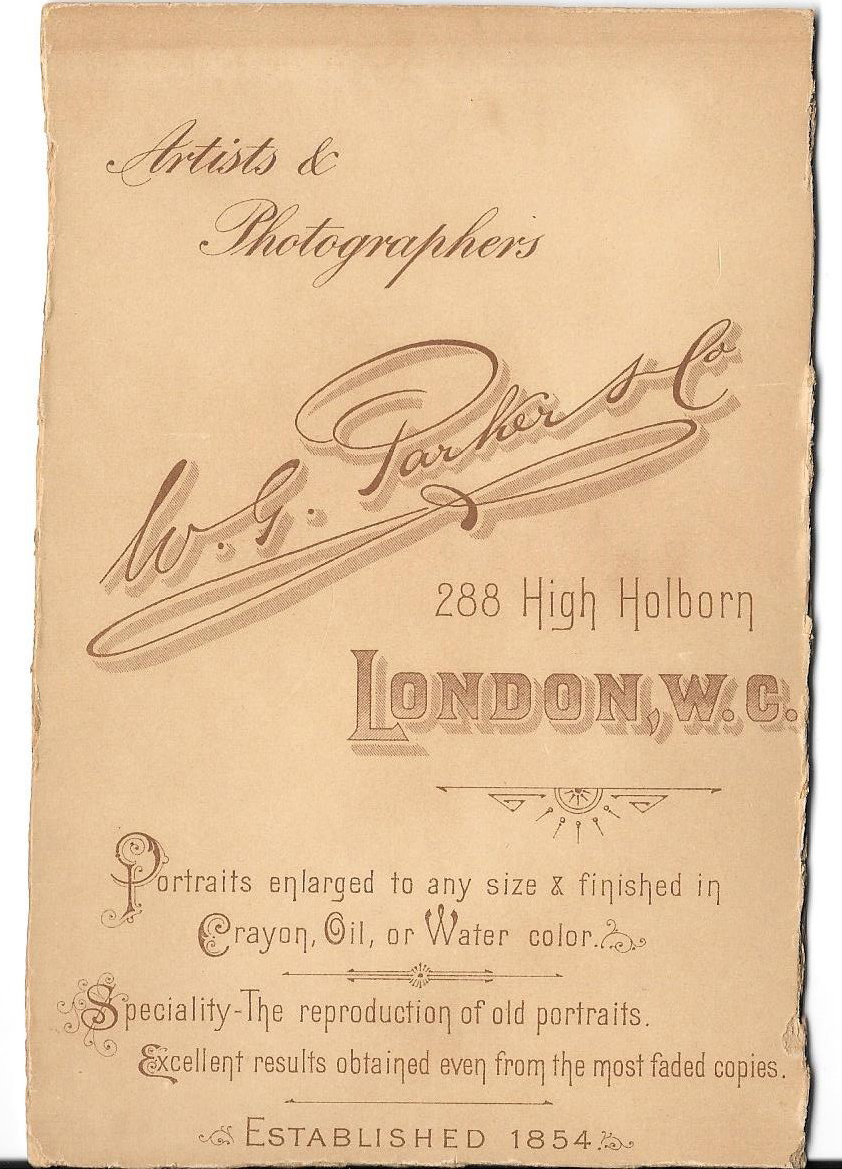 Artists &
Photographers
W. G. Parker & Co
288 High Holborn
LONDON, W. C.
Portraits enlarged to any size & finished in
Crayon, Oil, or Water color.
Speciality-The reproduction of old portraits.
Excellent results obtained even from the most faded copies.
ESTABLISHED 1854.